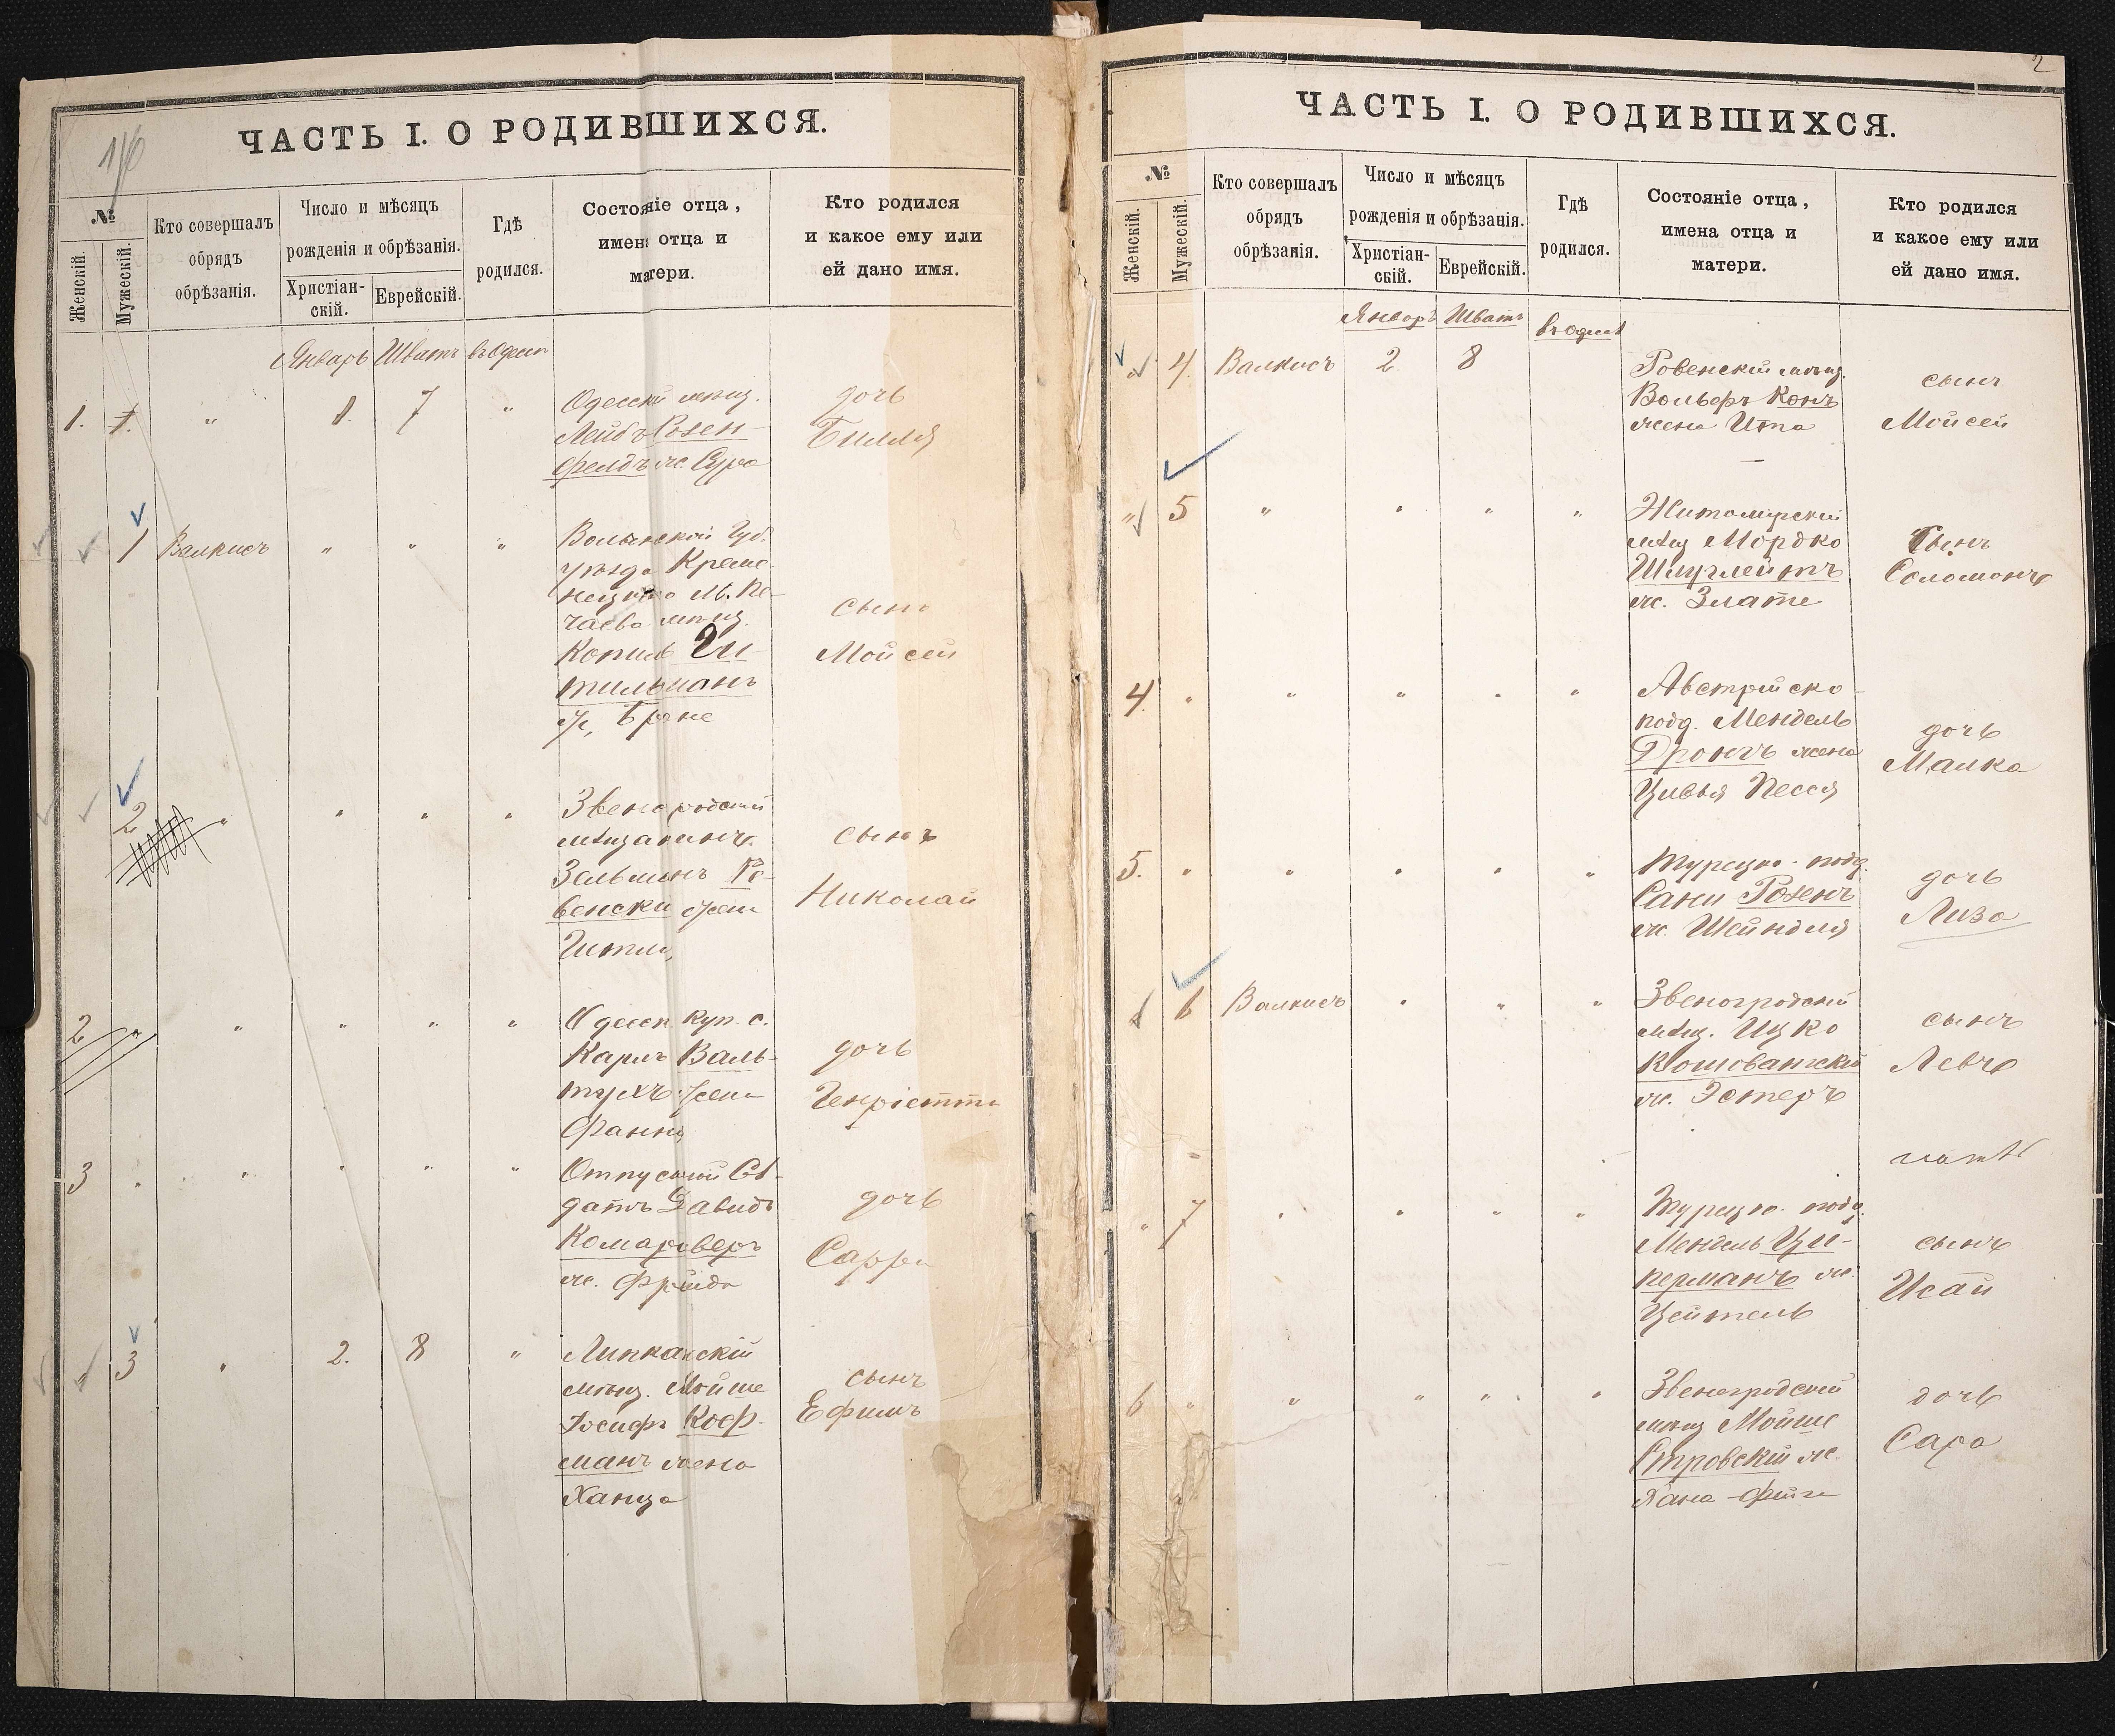 ЧАСТЬ I. О РОДИВШИХСЯ.
№
Женскій.
Мужескій.
Кто совершалъ
обрядъ
обрѣзанія.
Число и мѣсяцъ
рожденія и обрѣзанія.
Христіан-
скій.
Еврейскій.
Гдѣ
родился.
Состояніе отца,
имена отца и
матери.
Кто родился
и какое ему или
ей дано имя.
Январь Шватъ
1. 1. " 1. 7 "
Одесскій мѣщ.
Лейбъ Розен-
фелдъ ж. Сура
дочь
Билля
1 Валкисъ " " "
Волынской Губ.
уѣзда Креме-
нецкаго М. По-
чаева мѣщ.
Копиль Ги-
тильманъ
ж, Бране
сынъ
Мойсей
2 " " " "
Звенигородскій
мѣщанинъ
Зальманъ Ро-
венски жена
Гитля,
сынъ
Николай
2 " " " " "
Одесск. куп. с.
Карлъ Валь-
тухъ жена
Фанни
дочь
Генріетта
3 " " " " "
Отпускной Сол-
датъ Давидъ
Комароверъ
ж. Фрейда
дочь
Сарра
3 " 2. 8 "
Липканскій
мѣщ. Мойше
Іосифъ Коф-
манъ жена
Ханца
сынъ
Ефимъ
2
ЧАСТЬ I. О РОДИВШИХСЯ.
№
Женскій.
Мужескій.
Кто совершалъ
обрядъ
обрѣзанія.
Число и мѣсяцъ
рожденія и обрѣзанія.
Христіан-
скій.
Еврейскій.
Гдѣ
родился.
Состояніе отца,
имена отца и
матери.
Кто родился
и какое ему или
ей дано имя.
Январь Шватъ
4. Валкисъ 2. 8
Ровенскій мѣщ.
Вольфъ Конъ
жена Ита
сынъ
Мойсей
" 5 " " " "
Житомирскій
мѣщ Мордко
ж. Злате
Сынъ
Соломонъ
4. " " " " "
Австрійско-
подд. Мендель
Дронгъ жена
Цивья Песся
дочь
Малка
5. " " " " "
Турецко-подд.
Сани Розенъ
ж. Шейндля
дочь
Лиза
6 Валкисъ " " "
Звеногродскій
мѣщ. Ицко
Кошоватскій
ж. Эстеръ
сынъ
Левъ
" 7 " " " "
Турецко-подд.
Мендель Ци-
керманъ ж.
Цейтель
сынъ
Исай
6 " " " " "
Звеногродскій
мѣщ Мойше
Островскій ж.
Хана-Фейга
дочь
Сара